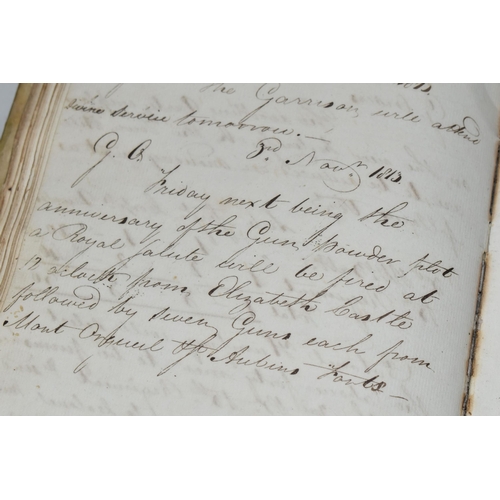 the Garrison will attend
divine service tomorrow. —
G. O. 3rd Novr. 1813.
Friday next being the
anniversary of the Gun powder plot
a Royal Salute will be fired at
12 oClock from Elizabeth Castle
followed by seven Guns each from
Mont Orgueil & St Aubins Forts —